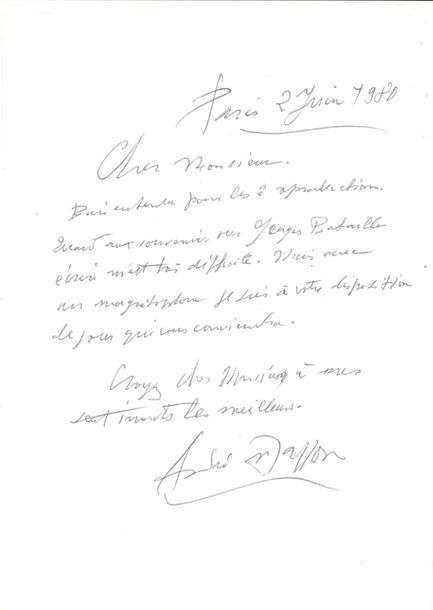 Paris 2 Juin 1980
Cher Monsieur.
Bien entendu pour les 2 reproductions.
Quant aux souvenirs sur Georges Bataille
écrire m'est très difficile. Mais avec
un magnétophone je suis à votre disposition
le jour qui vous conviendra.
Croyez cher Monsieur à mes
sentiments les meilleurs.
André Masson